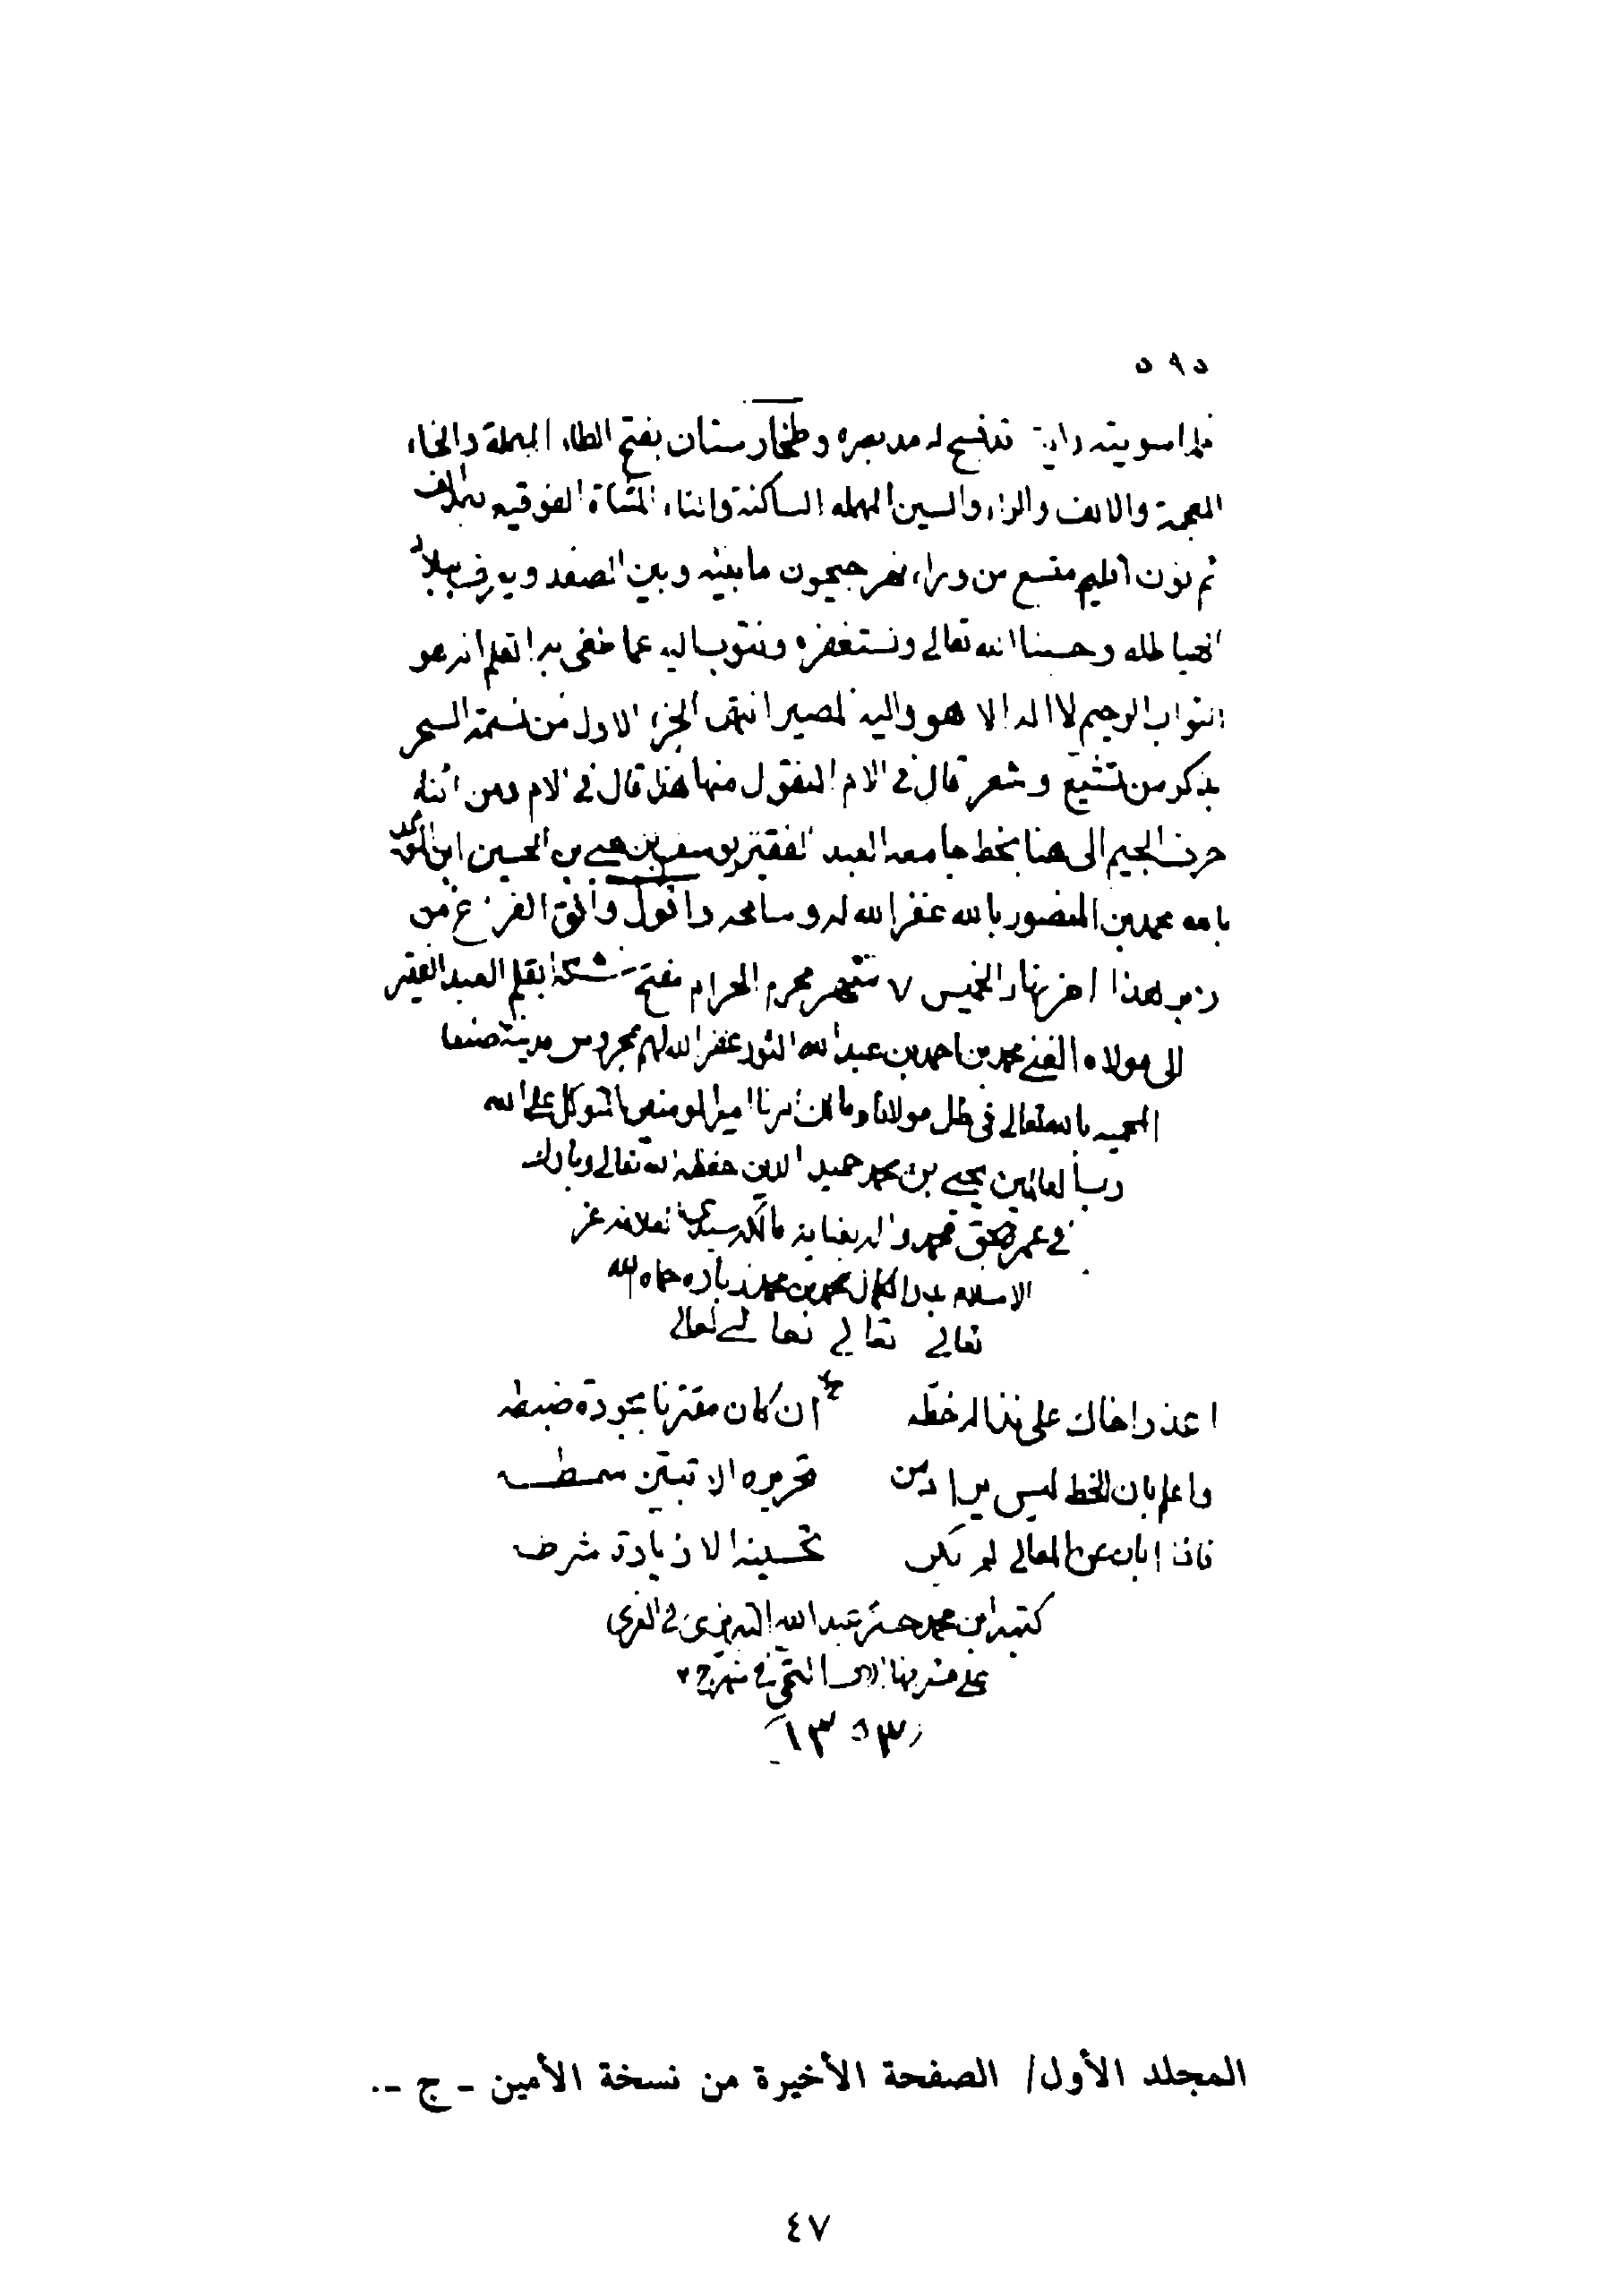 ٥٩٥
وطخارستان بفتح الطاء المهملة والخاء
المعجمة والالف والراء والسين المهمله الساكنة والتاء المثناة الفوقيه
ثم نون اقليم متسع من وراء نهر جيحون ما بينه وبين الصغد ويعرف ببلاد
الهياطله وحسبنا الله تعالى ونستغفره ونتوب اليه عما طغى به القلم انه هو
التواب الرحيم لا اله الا هو واليه المصير انتهى الجزء الاول من نسمة السحر
بذكر من تشيع وشعر قال في الام المنقول منها هذا قال في الام ومن اثناء
حرف الجيم الى هنا بخط جامعه العبد الفقير يوسف بن يحيى بن الحسين ابن المؤيد
بالله محمد بن المنصور بالله غفر الله له وسامحه وافق الفراغ من
زبر هذا اخر نهار الخميس ٧ شهر محرم الحرام مفتتح بقلم العبد الفقير
الى مولاه الغني محمد بن احمد بن عبد الله غفر الله لهم بمحروس مدينة صنعا
المحميه بالله تعالى في ظل مولانا ومالك امرنا امير المومنين المتوكل على الله
رب العالمين يحيى بن محمد حميد الدين حفظه الله تعالى وبارك
في عمره بحق محمد واله بعناية مالكه سيدي العلامه عز
الاسلام محمد بن محمد زباره حماه الله
تعالى تعالى تعالى تعالى
اعذر اخاك على نذالة خطه ان كان مقترنا بجودة ضبطه
واعلم بان الخط ليس يراد من تحريره الا تبين سمطه
فاذا ابان عن المعاني لم يكن تحسينه الا زيادة شرطه
كتبه ابن محمد عبد الله في الغري
على مشرفها
١٣٥٣
المجلد الأول/ الصفحة الأخيرة من نسخة الأمين - ج -.
٤٧